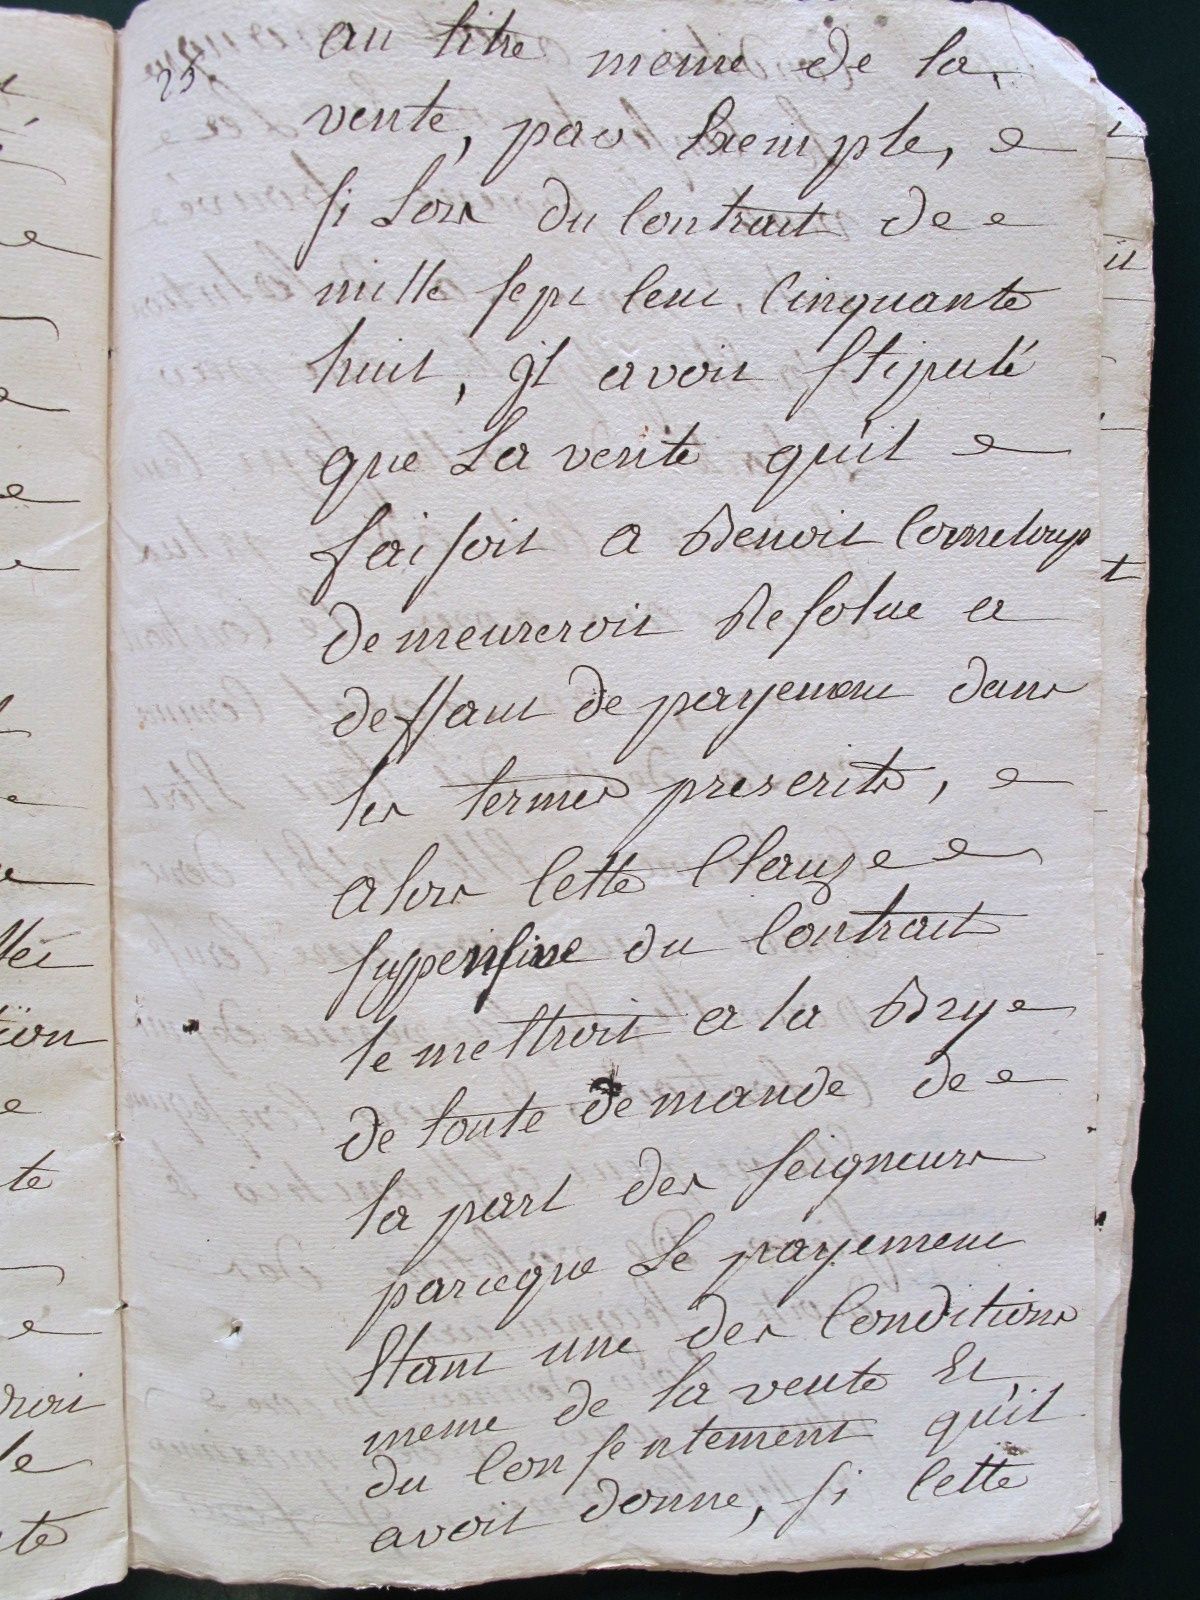 25
au titre meme de la
vente, par Exemple,
si Lors du Contrait de
mille sept Cent Cinquante
huit, jl avoit stipulé
que La vente quil
faisoit a Benoit Corneloup
demeureroit Resolue a
deffaut de payement dans
les termes prescrits,
alors Cette Clauze
suspensive du Contrait
le mettroit a la Brye
de toute demande de
la part des seigneurs
parceque Le payement
Etant une des Conditions
meme de la vente Et
du Consentement quil
avoit donne, si Cette